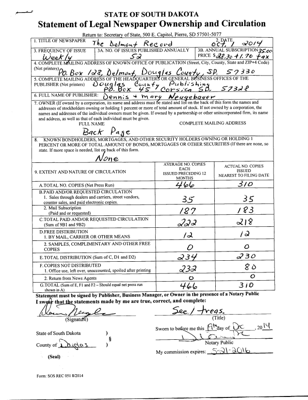 STATE OF SOUTH DAKOTA
Statement of Legal Newspaper Ownership and Circulation
Return to: Secretary of State, 500 E. Capitol, Pierre, SD 57501-5077
1. TITLE OF NEWSPAPER
The Delmont Record
2. DATE
Oct. 1 2014
3. FREQUENCY OF ISSUE
Weekly
3A. NO. OF ISSUES PUBLISHED ANNUALLY
52
3B. ANNUAL SUBSCRIPTION
PRICE
4. COMPLETE MAILING ADDRESS OF KNOWN OFFICE OF PUBLICATION (Street, City, County, State and ZIP+4 Code)
(Not printers)
P.O. Box 128, Delmont, Douglas County, SD 57330
5. COMPLETE MAILING ADDRESS OF THE HEADQUARTERS OR GENERAL BUSINESS OFFICES OF THE
PUBLISHER (Not printer)
Douglas County Publishing
P.O. Box 45 Corsica SD 57328
6. FULL NAME OF PUBLISHER:
Dennis & Mary Neugebauer
7. OWNER (If owned by a corporation, its name and address must be stated and
addresses of stockholders owning or holding 1 percent or more of total amount of stock. If not owned by a corporation, the
names and addresses of the individual owners must be given. If owned by a partnership or other unincorporated firm, its name
and address, as well as that of each individual must be given.
FULL NAME
COMPLETE MAILING ADDRESS
Back Page
8. KNOWN BONDHOLDERS, MORTGAGEES, AND OTHER SECURITY HOLDERS OWNING OR HOLDING 1
PERCENT OR MORE OF TOTAL AMOUNT OF BONDS, MORTGAGES OR OTHER SECURITIES (If there are none, so
state. If more space is needed, list on back of this form.
None
9. EXTENT AND NATURE OF CIRCULATION
AVERAGE NO. COPIES
EACH
ISSUED PRECEDING 12
MONTHS
ACTUAL NO. COPIES
ISSUED
NEAREST TO FILING DATE
A. TOTAL NO. COPIES (Net Press Run)
466 310
B. PAID AND/OR REQUESTED CIRCULATION
1. Sales through dealers and carriers, street vendors,
counter sales, and paid electronic copies.
35 35
2. Mail Subscription
(Paid and/or requested)
187 183
C. TOTAL PAID AND/OR REQUESTED CIRCULATION
(Sum of 9B1 and 9B2)
222 218
D. FREE DISTRIBUTION
1. BY MAIL, CARRIER OR OTHER MEANS
12 12
2. SAMPLES, COMPLIMENTARY AND OTHER FREE
COPIES
0 0
E. TOTAL DISTRIBUTION (Sum of C, D1 and D2)
234 230
F. COPIES NOT DISTRIBUTED
1. Office use, left over, unaccounted, spoiled after printing
232 80
2. Return from News Agents
0 0
G. TOTAL (Sum of E, F1 and F2 – Should equal net press run
shown in A)
466 310
Statement must be signed by Publisher, Business Manager, or Owner in the presence of a Notary Public
I swear that the statements made by me are true, correct, and complete:
(Signature)
Sec / treas.
(Title)
State of South Dakota )
County of Douglas )
(Seal)
Sworn to before me this day of 2014
Notary Public
My commission expires: 5-21-2016
Form: SOS REC 051 8/2014